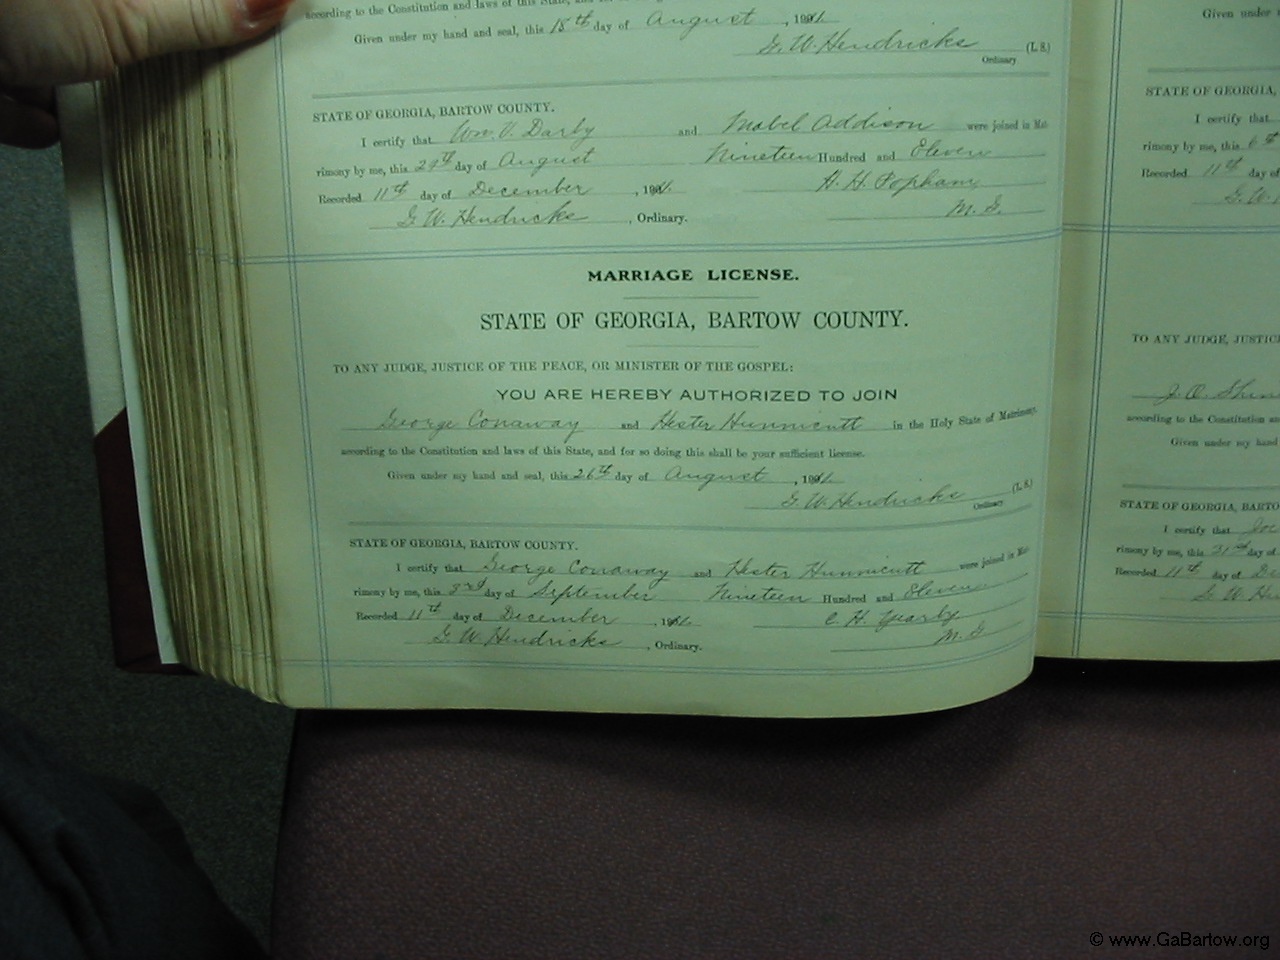 according to the Constitution and laws of this State, and for so doing
Given under my hand and seal, this 15th day of August, 1911.
G. W. Hendricks (L. S.)
Ordinary
STATE OF GEORGIA, BARTOW COUNTY.
I certify that Wm. V. Darby and Mabel Addison were joined in Mat-
rimony by me, this 29th day of August Nineteen Hundred and Eleven
Recorded 11th day of December, 1911. H. H. Popham
G. W. Hendricks, Ordinary. M. G.
MARRIAGE LICENSE.
STATE OF GEORGIA, BARTOW COUNTY.
TO ANY JUDGE, JUSTICE OF THE PEACE, OR MINISTER OF THE GOSPEL:
YOU ARE HEREBY AUTHORIZED TO JOIN
George Conaway and Hester Hunnicutt in the Holy State of Matrimony,
according to the Constitution and laws of this State, and for so doing this shall be your sufficient license.
Given under my hand and seal, this 26th day of August, 1911.
G. W. Hendricks (L. S.)
Ordinary
STATE OF GEORGIA, BARTOW COUNTY.
I certify that George Conaway and Hester Hunnicutt were joined in Mat-
rimony by me, this 3rd day of September Nineteen Hundred and Eleven
Recorded 11th day of December, 1911. C. H. Yearby
G. W. Hendricks, Ordinary. M. G
Given under
STATE OF GEORGIA,
I certify that
rimony by me, this 6th
Recorded 11th
G. W.
TO ANY JUDGE, JUSTIC
J. O.
according to the Constitution an
Given under my hand
STATE OF GEORGIA, BARTO
I certify that Joe
rimony by me, this 21st day of
Recorded 11th day of De
G. W. He
© www.GaBartow.org